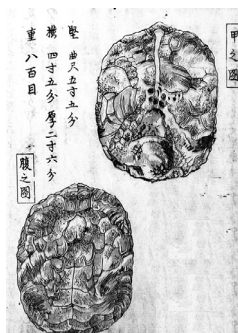 甲之圖
竪 曲尺五寸五分
横 四寸五分 厚二寸六分
重 八百目
腹之圖